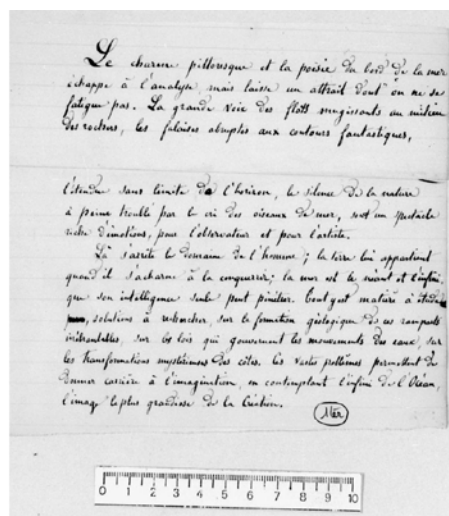 Le charme pittoresque et la poésie du bord de la mer
échappe à l'analyse, mais laisse un attrait dont on ne se
fatigue pas. La grande voix des flots mugissants au milieu
des rochers, les falaises abruptes aux contours fantastiques,
l'étendue sans limite de l'horizon, le silence de la nature
à peine troublé par le cri des oiseaux de mer, sont un spectacle
riche d'émotions, pour l'observateur et pour l'artiste.
Là s'arrête le domaine de l'homme ; la terre lui appartient
quand il s'acharne à la conquérir ; la mer est le néant et l'infini
que son intelligence seule peut pénétrer. Tout y est matière à étude
solutions à rechercher, sur la formation géologique de ces remparts
inébranlables, sur les lois qui gouvernent les mouvements des eaux, sur
les transformations mystérieuses des côtes. Ces vastes problèmes permettent de
donner carrière à l'imagination, en contemplant l'infini de l'Océan,
l'image la plus grandiose de la Création.
Mer
0 1 2 3 4 5 6 7 8 9 10